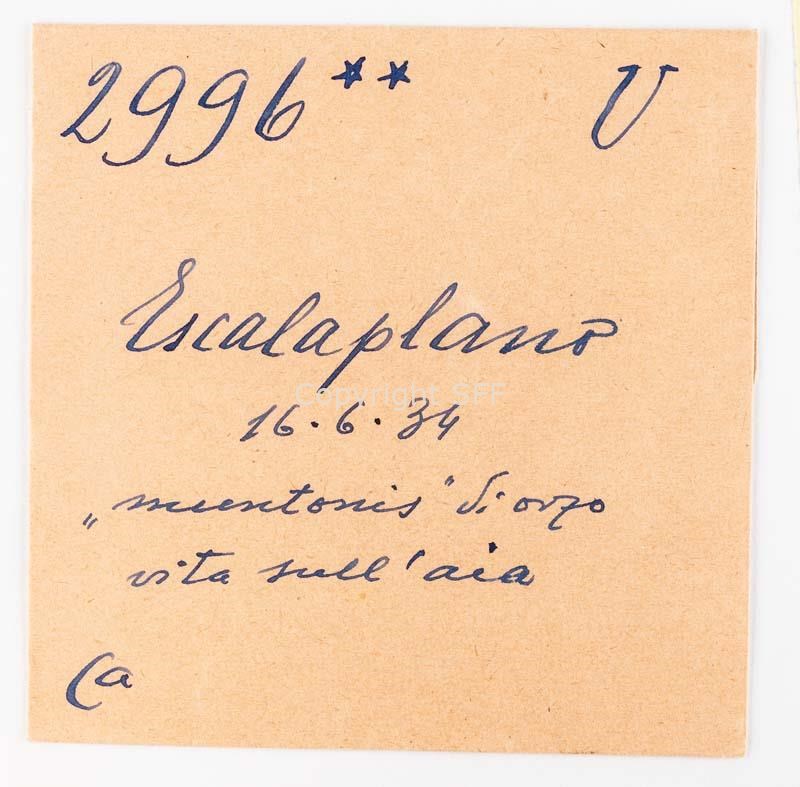 2996** V
Escalaplano
Copyright SFF
16.6.34
„muntonis" di orzo
vita sull'aia
Ca